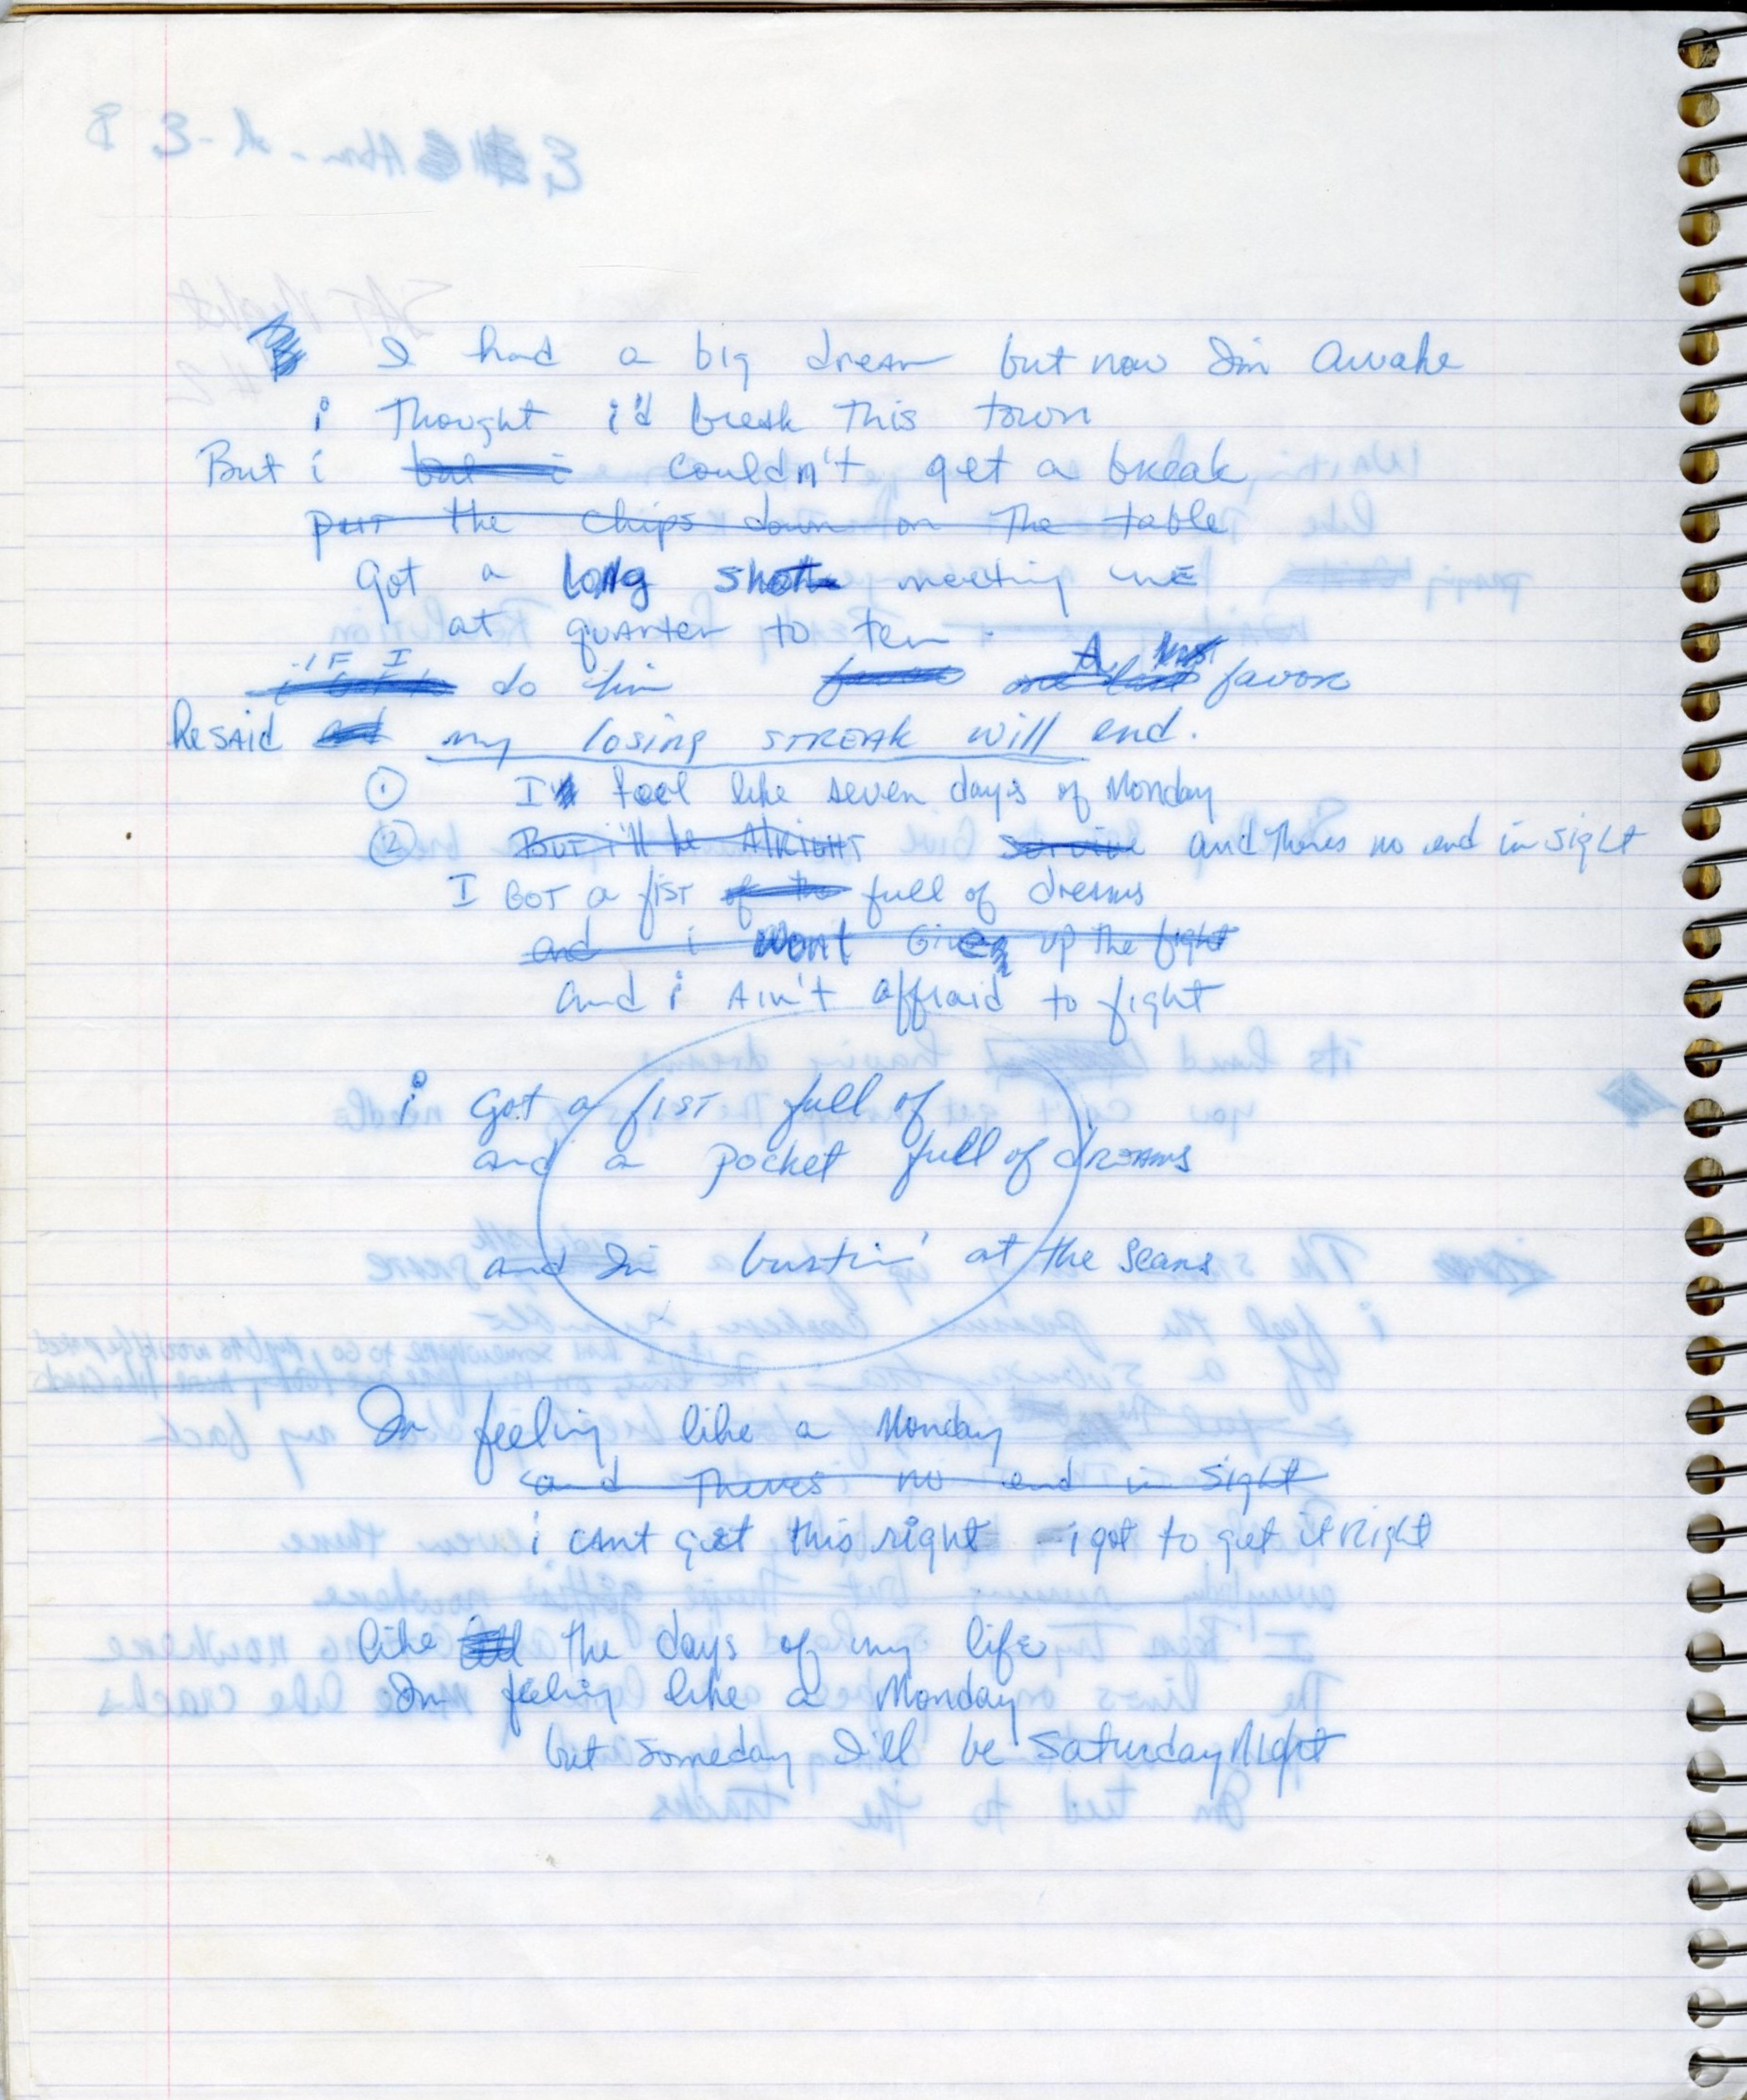 I had a big dream but now I'm Awake
i Thought i'd break This town
But i but i couldn't get a break
put the chips down on The table
Got a long shot meeting me
at quarter to ten
IF I do him A favor
he said my losing STREAK will end.
① I feel like seven days of Monday
② But i'll be Alright survive and theres no end in sight
I GOT a fist of the full of dreams
and i wont Give up the fight
and i Ain't affraid to fight
i got a fIST full of
and a pocket full of dREAMS
and I'm bustin' at the seams
Im feeling like a Monday
and Theres no end in sight
i cant get this right - i got to get it Right
like all the days of my life
Im feeling like a Monday
but someday I'll be Saturday Night